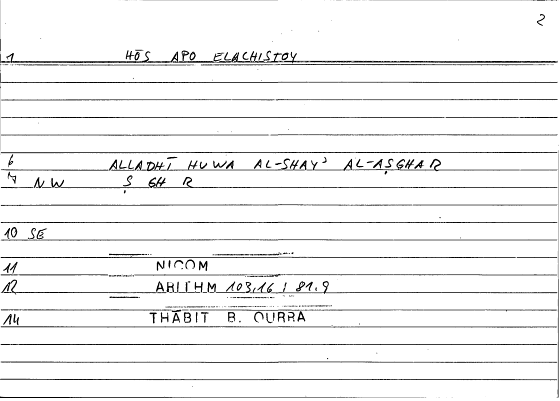 2
1 HŌS APO ELACHISTOY
6 ALLADHĪ HUWA AL-SHAYʾ AL-AṢGHAR
7 NW Ṣ GH R
10 SE
11 NICOM
12 ARITHM 103,16 ; 81.9
14 THĀBIT B. QURRA